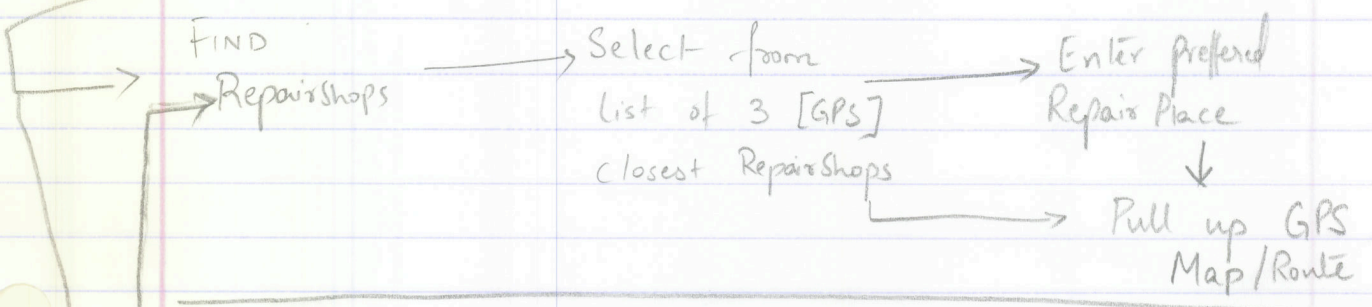 FIND
Repairshops
Select from
list of 3 [GPS]
closest RepairShops
Enter preffered
Repair Place
Pull up GPS
Map/Route